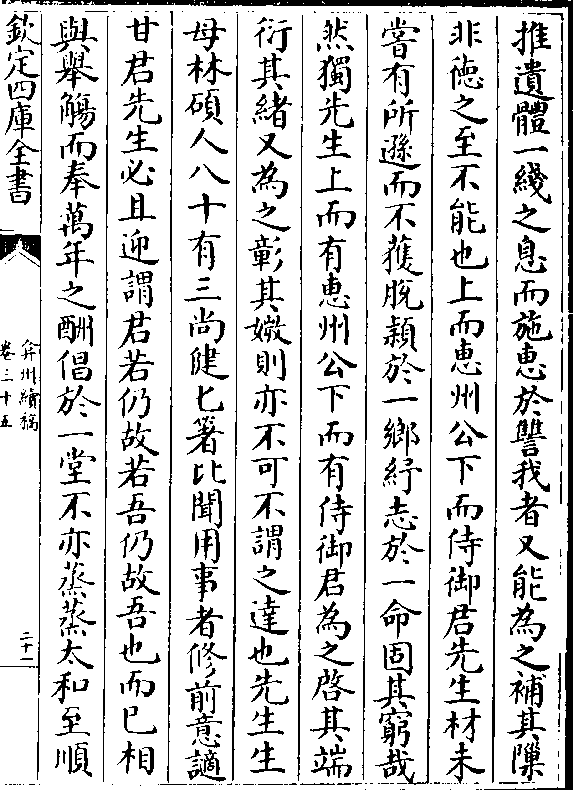 推遺體一綫之息而施惠於讐我者又能為之補其隟
非徳之至不能也上而惠州公下而侍御君先生材未
嘗有所遜而不獲脫穎於一鄉紓志於一命固其窮哉
然獨先生上而有惠州公下而有侍御君為之啓其端
衍其緒又為之彰其媺則亦不可不謂之達也先生生
母林碩人八十有三尚健匕箸比聞用事者修前意謫
甘君先生必且迎謂君若仍故若吾仍故吾也而已相
與舉觴而奉萬年之酬倡於一堂不亦蒸蒸太和至順
欽定四庫全書
弇州續稿
卷三十五
二十一